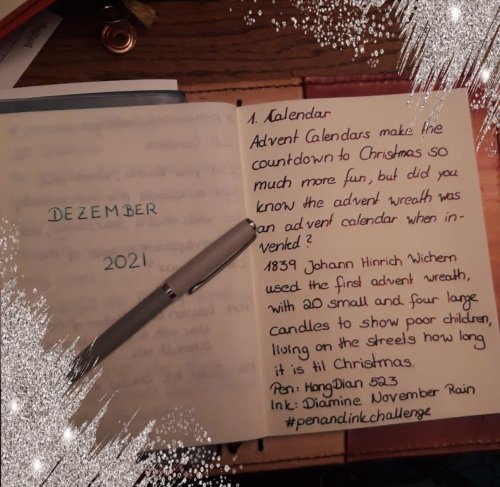 DEZEMBER
2021
1. Calendar
Advent Calendars make the
countdown to Christmas so
much more fun, but did you
know the advent wreath was
an advent calendar when in-
vented?
1839 Johann Hinrich Wichern
used the first advent wreath,
with 20 small and four large
candles to show poor children,
living on the streets how long
it is til Christmas.
Pen: HongDian 523
Ink: Diamine November Rain
#penandinkchallenge